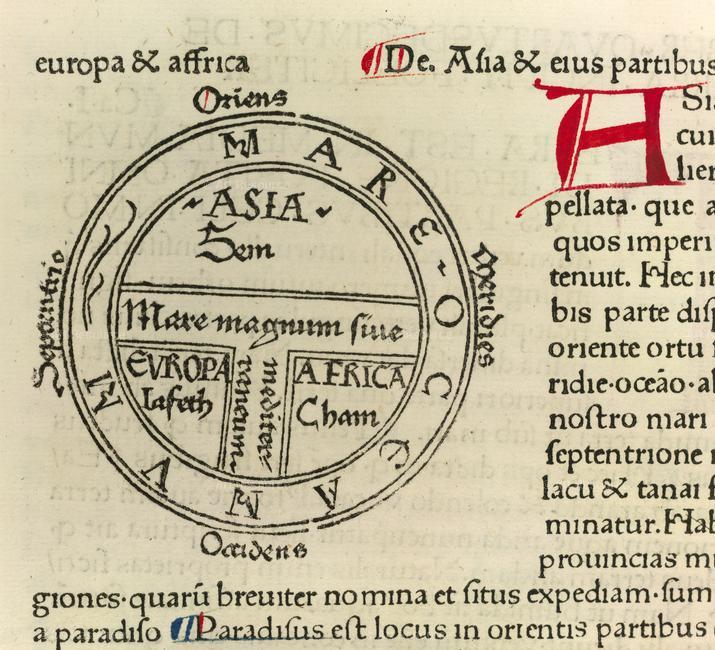 europa & affrica
Oriens
MARE OCCEANVM
ASIA
Sem
Mare magnum siue
mediter
raneum.
EVROPA
Iafeth
AFRICA
Cham
Septentrio
Meridies
Occidens
¶De. Asia & eius partibus
ASi
cui
lier
pellata· que a
quos imperi
tenuit. Hec in
bis parte disp
oriente ortu
ridie·oceāo·al
nostro mari
septentrione
lacu & tanai f
minatur. Hab
prouincias mu
giones·quarū breuiter nomina et situs expediam·sum
a paradiso ¶Paradisus est locus in orientis partibus